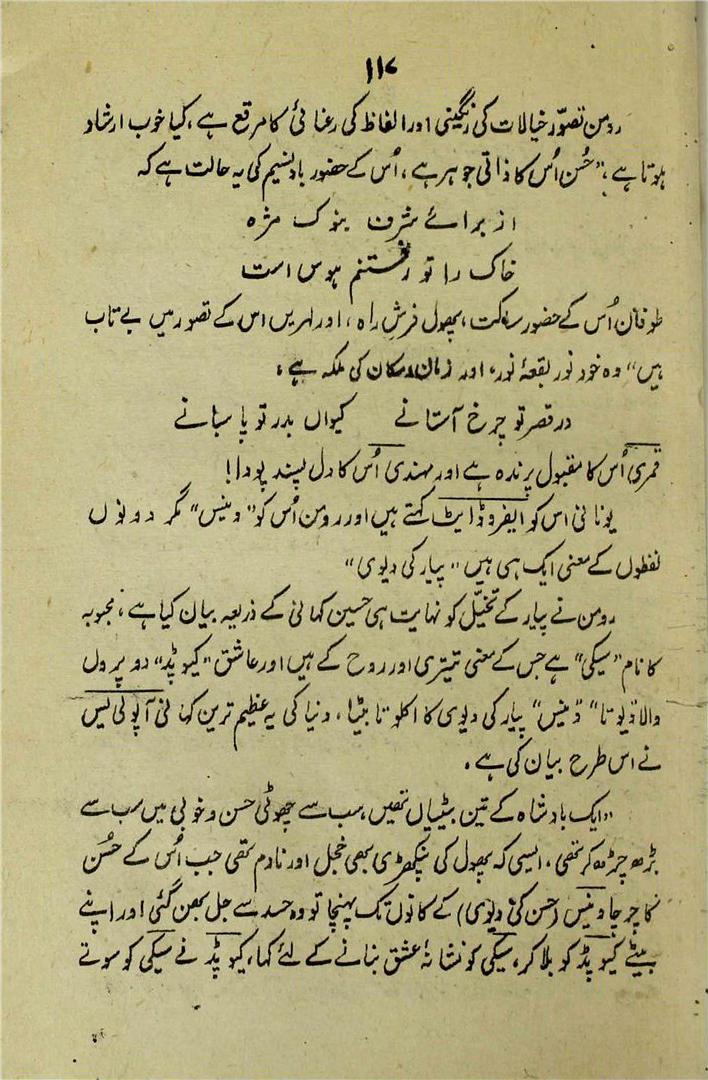 ۱۱۷
رومن تصوّر خیالات کی رنگینی اور الفاظ کی رعنائی کا مرقع ہے، کیا خوب ارشاد
ہوتا ہے، "حُسن اُس کا ذاتی جوہر ہے، اُس کے حضور بادِ نسیم کی یہ حالت ہے کہ
از برائے شرف بنوک مژہ
خاک راہ تو رفتنم ہوس است
طوفان اُس کے حضور ساکت، پھول فرشِ راہ، اور لہریں اس کے تصور میں بے تاب
ہیں" وہ خود نور بقعۂ نور، اور زمان و مکان کی ملکہ ہے؛
در قصر تو چرخ آستانے کیواں بدر تو پاسبانے
قمری اُس کا مقبول پرندہ ہے اور مہندی اُس کا دل پسند پودا!
یونانی اس کو ایفروڈائٹ کہتے ہیں اور رومن اُس کو "وینس" مگر دونوں
لفظوں کے معنی ایک ہی ہیں "پیار کی دیوی"
رومن نے پیار کے تخیّل کو نہایت ہی حسین کہانی کے ذریعہ بیان کیا ہے، محبوبہ
کا نام "سیکی" ہے جس کے معنی تیتری اور روح کے ہیں اور عاشق "کیوپڈ" دو پروں
والا دیوتا "وینس" پیار کی دیوی کا اکلوتا بیٹا، دنیا کی یہ عظیم ترین کہانی آپولی لیس
نے اس طرح بیان کی ہے۔
"ایک بادشاہ کے تین بیٹیاں تھیں، سب سے چھوٹی حسن و خوبی میں سب سے
بڑھ چڑھ کر تھی، ایسی کہ پھول کی پنکھڑی بھی خجل اور نادم تھی جب اُس کے حُسن
کا چرچا وینس (حسن کی دیوی) کے کانوں تک پہنچا تو وہ حسد سے جل بھن گئی اور اپنے
بیٹے کیوپڈ کو بلا کر، سیکی کو نشانۂ عشق بنانے کے لئے کہا، کیوپڈ نے سیکی کو سوتے